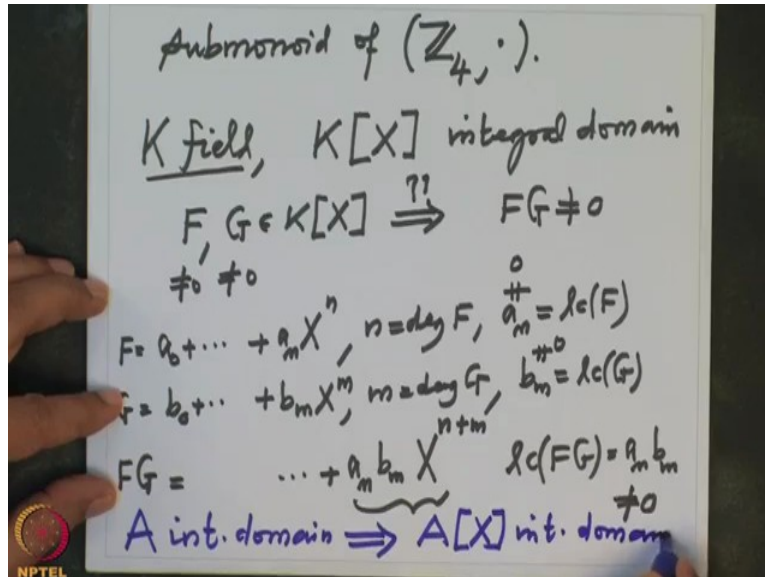 submonoid of (ℤ₄, ·).
K field, K[X] integral domain
F, G ∈ K[X] ⇒ FG ≠ 0
??
≠0 ≠0
0
F = a₀ + ⋯ + aₙXⁿ, n = deg F, aₙ ≠ = lc(F)
G = b₀ + ⋯ + bₘXᵐ, m = deg G, bₘ ≠0 = lc(G)
FG = ⋯ + aₙbₘXⁿ⁺ᵐ lc(FG) = aₙbₘ
≠0
A int. domain ⇒ A[X] int. domain
NPTEL